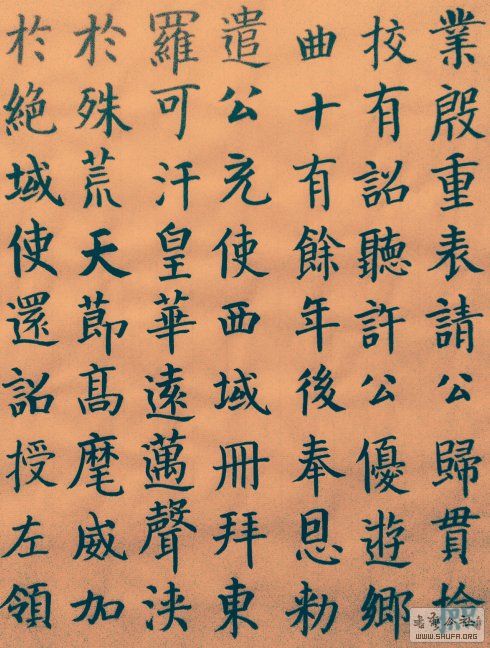 業殷重表請公歸貫檢
挍有詔聽許公優遊鄉
曲十有餘年後奉恩勑
遣公充使西域冊拜東
羅可汗皇華遠邁聲浹
於殊荒天莭高麾威加
於絕域使還詔授左領
WWW.SHUFA.ORG